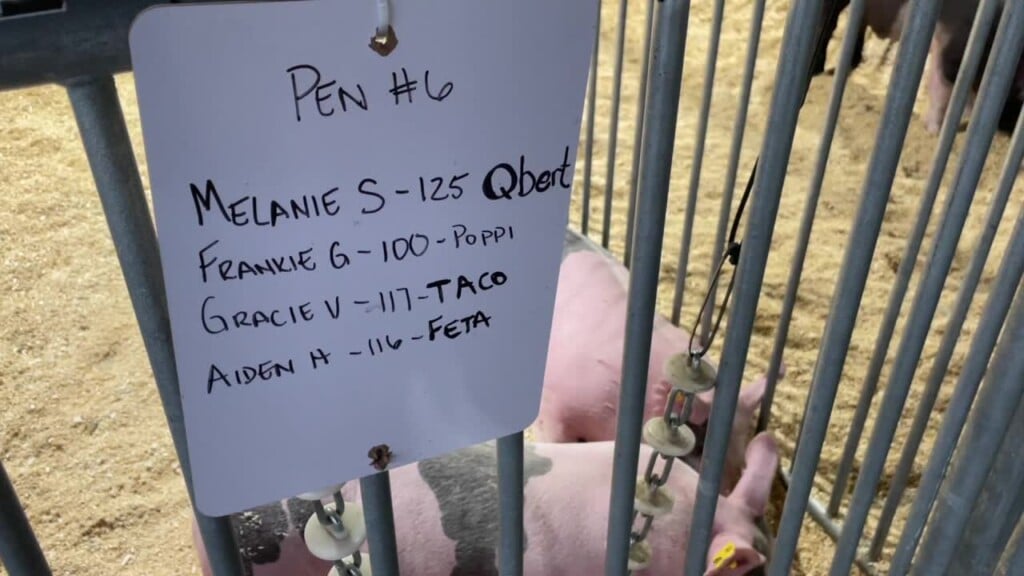 PEN #6
MELANIE S - 125 Qbert
FRANKIE G - 100 - POPPI
GRACIE V - 117 - TACO
AIDEN H - 116 - FETA